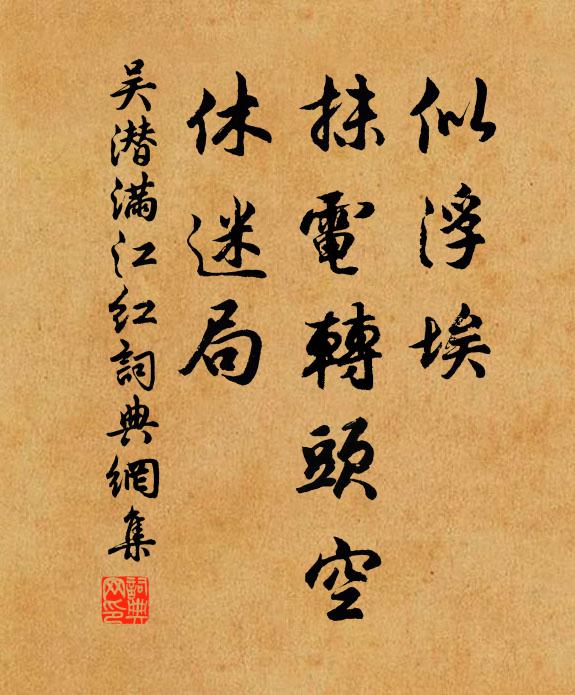 似浮埃
抹電轉頭空
休迷局
吴潜滿江红詞典網集
詞典网印